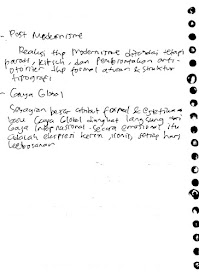 - Post Modernisme
Reaksi thp Modernisme ditandai dengan
parodi, kitsch, dan pemberontakan anti-
otoriter thp formal aturan & struktur
tipografi
- Gaya Global
Sebagian besar atribut formal & estetika
baru Gaya Global diangkat langsung dari
Gaya Internasional. Secara emosional, itu
adalah ekspresi keren, ironis, setiap hari
kebosanan